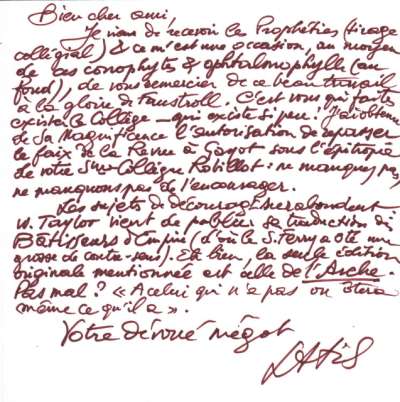 Bien cher ami,
Je viens de recevoir les Prophéties (tirage
collégial) & ce m'est une occasion, au moyen
de ces conophytes & ophtalmophylle (au
fond), de vous remercier de ce beau travail
à la gloire de Faustroll. C'est vous qui faites
exister le Collège — qui existe si peu ! J'ai obtenu
de Sa Magnificence l'autorisation de repasser
le faix de la Revue à Gayot sous l'épitropie
de votre Sur-Collègue Robillot : ne manquez pas,
ne manquons pas de l'encourager.
Les sujets de découragt surabondent
W. Taylor vient de publier sa traduction des
Bâtisseurs d'Empire (d'où le S. Ferry a ôté une
grosse de contre-sens). Eh bien, la seule édition
originale mentionnée est celle de l'Arche.
Pas mal ? « A celui qui n'a pas on ôtera
même ce qu'il a ».
Votre dévoué mégot
Latis